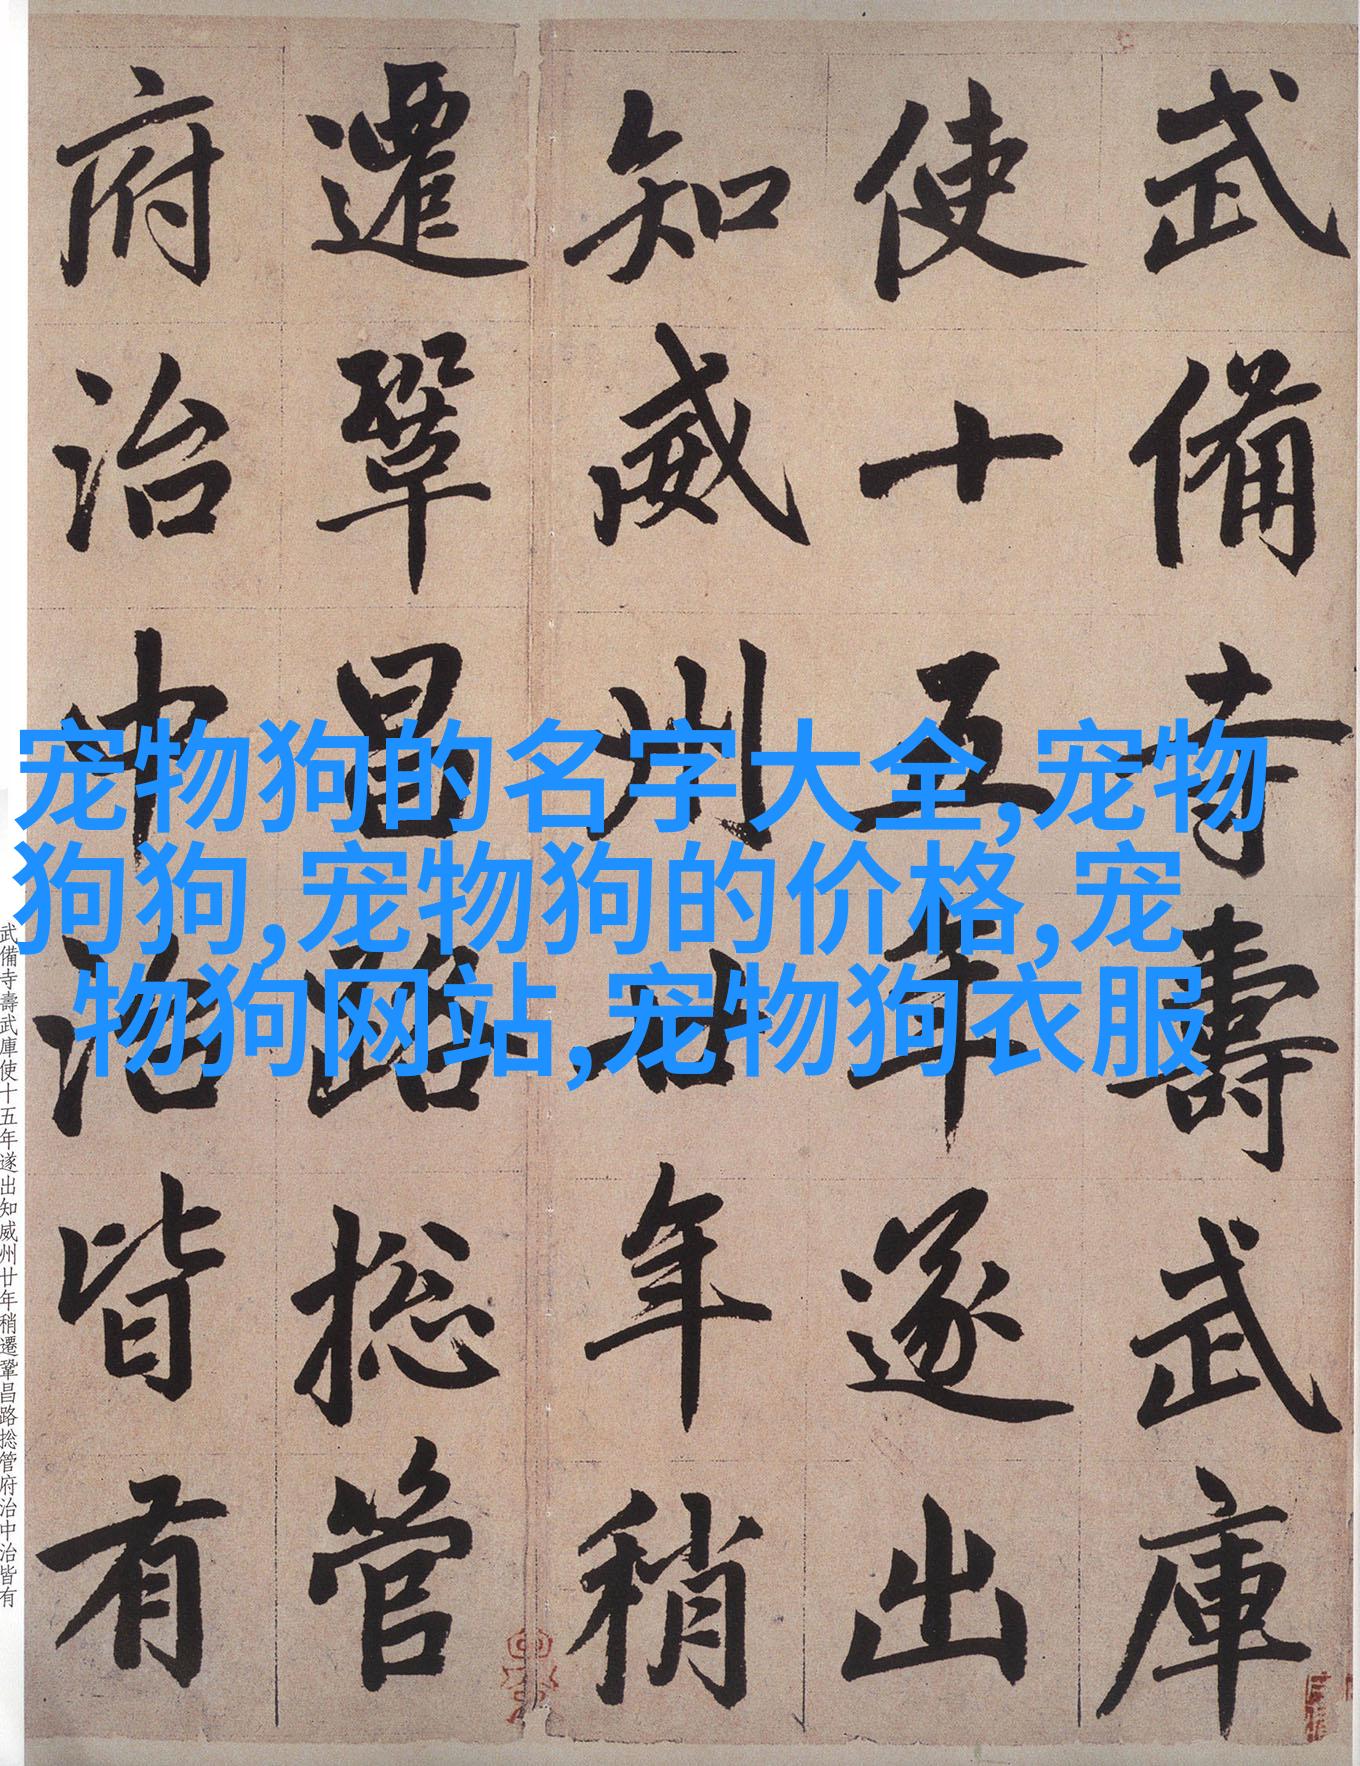 武備寺壽武庫
使十五年遂出
知威州廿年稍
遷鞏昌路捴管
府治中治皆有
宠物狗的名字大全,宠物
狗狗,宠物狗的价格,宠
物狗网站,宠物狗衣服
武備寺壽武庫使十五年遂出知威州廿年稍遷鞏昌路捴管府治中治皆有